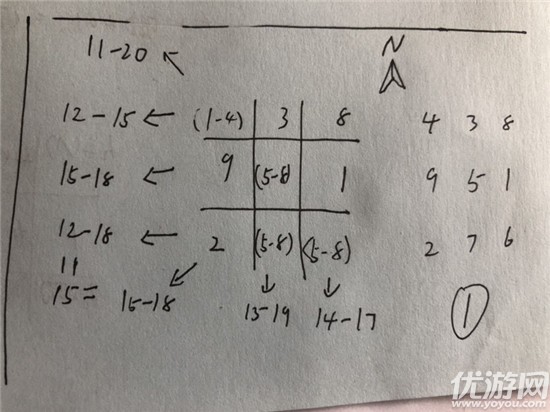 11-20 N
12-15 (1-4) 3 8 4 3 8
15-18 9 (5-8) 1 9 5 1
12-18 2 (5-8) (5-8) 2 7 6
11
15= 15-18 13-19 14-17 1
优游网
www.yoyou.com